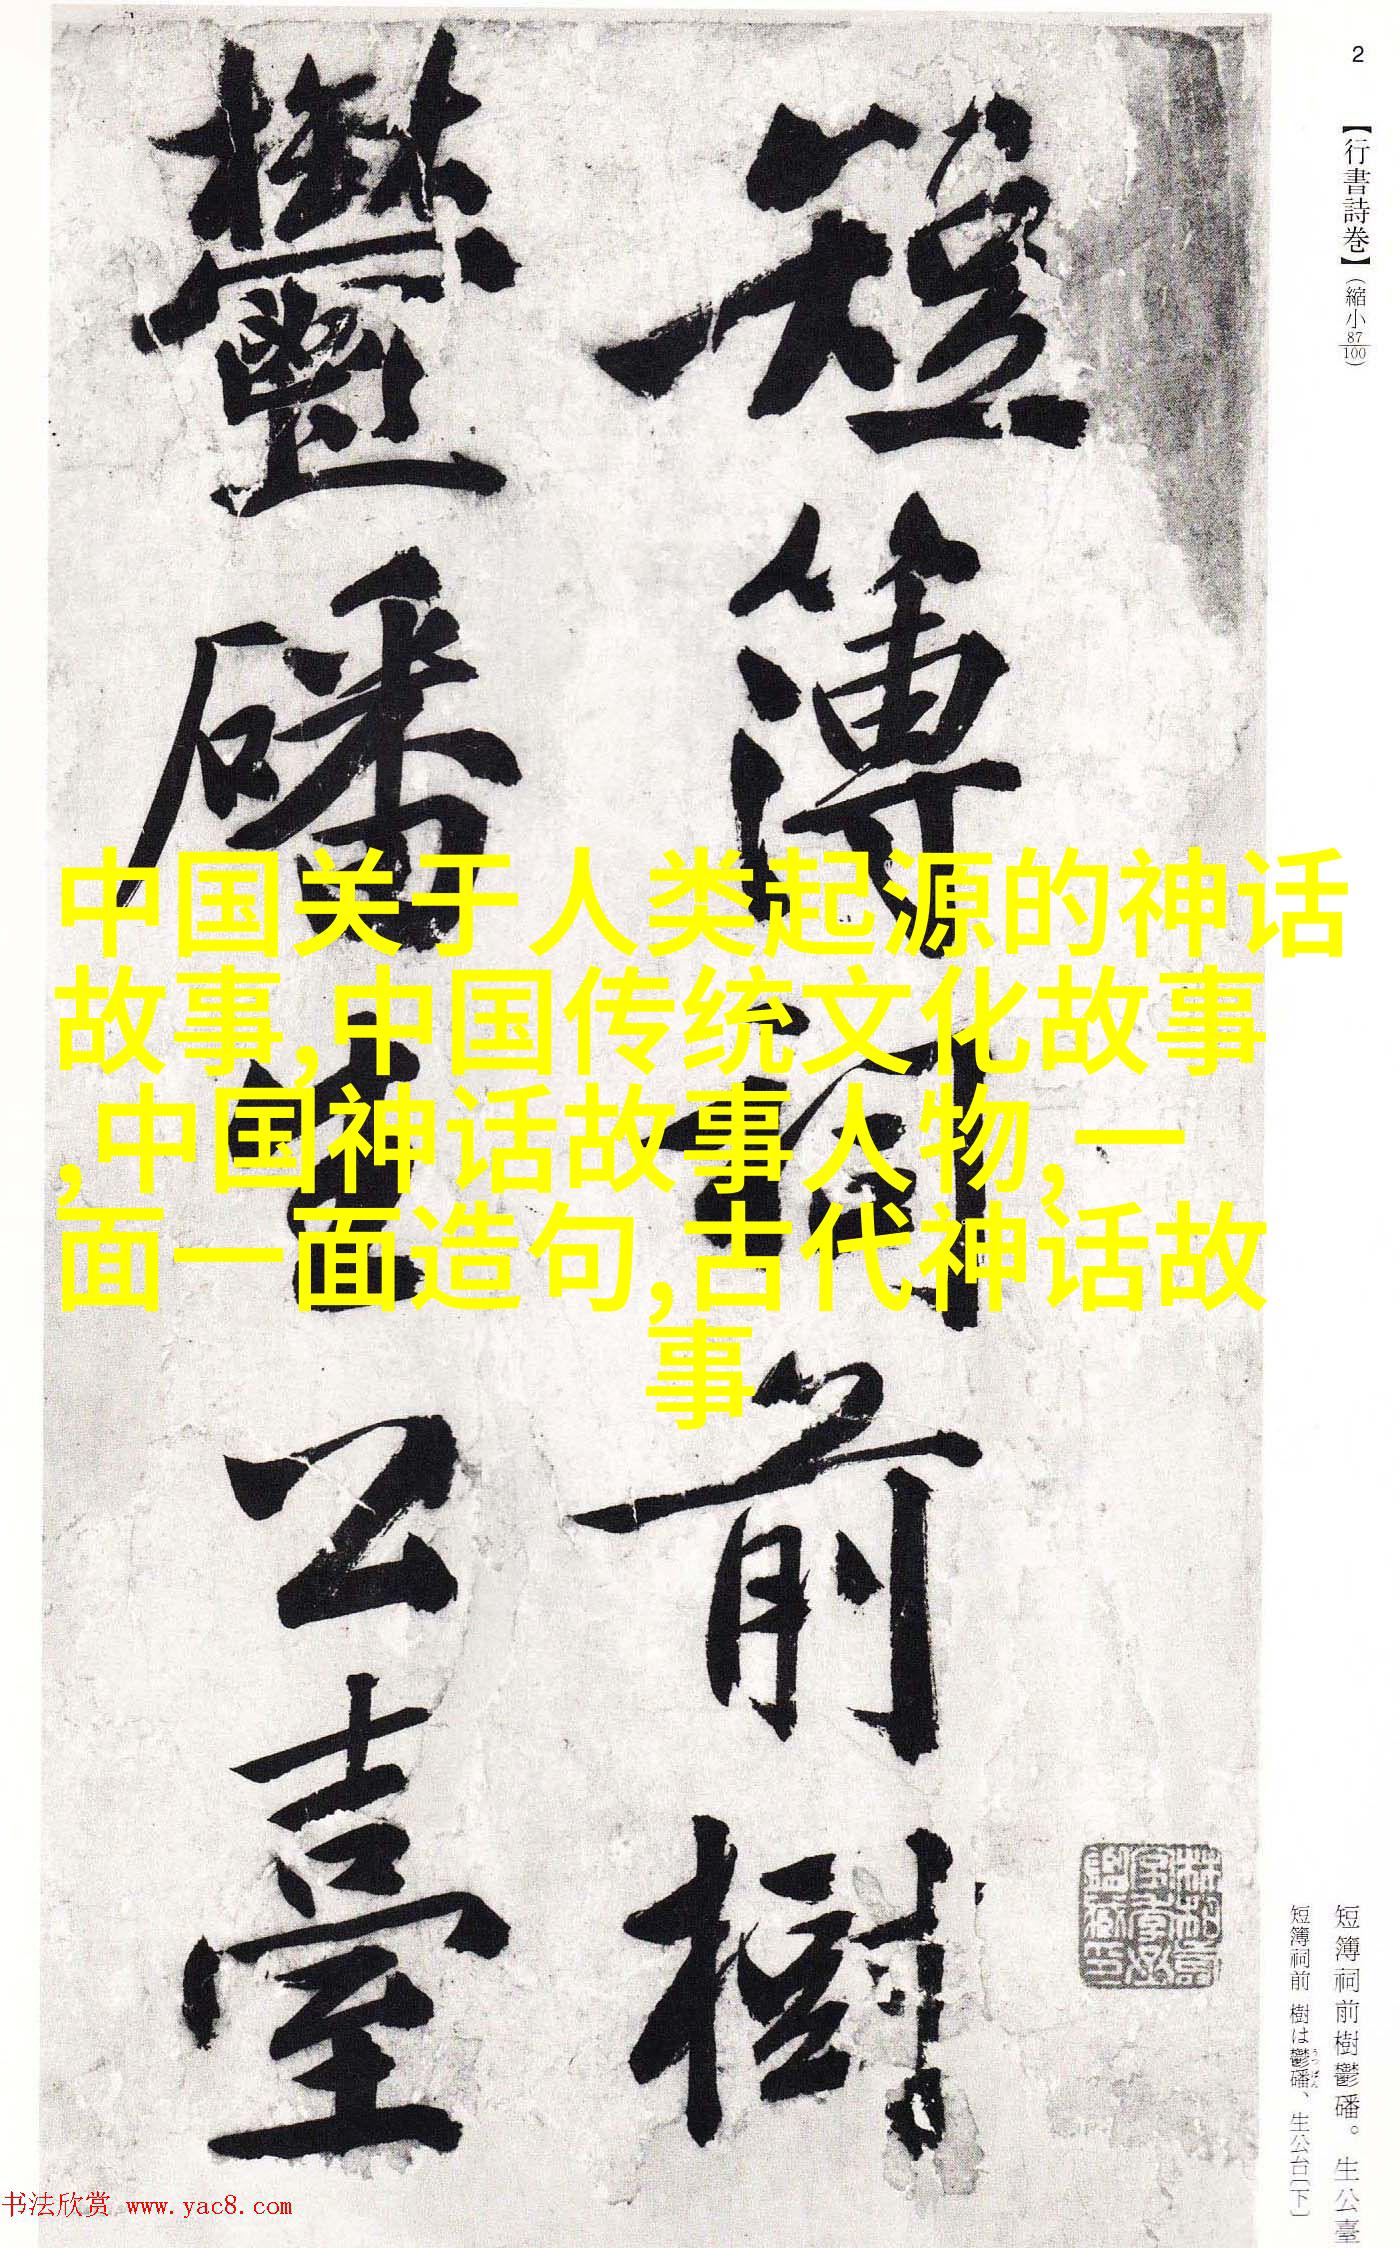 2
【行書詩巻】（縮小87/100）
短簿祠前樹
鬱磻生公臺
中国关于人类起源的神话
故事,中国传统文化故事
,中国神话故事人物,一
面一面造句,古代神话故
事
短簿祠前樹鬱磻。生公臺
短簿祠前 樹は鬱磻、生公台〔下〕
うっぱん
书法欣赏 www.yac8.com